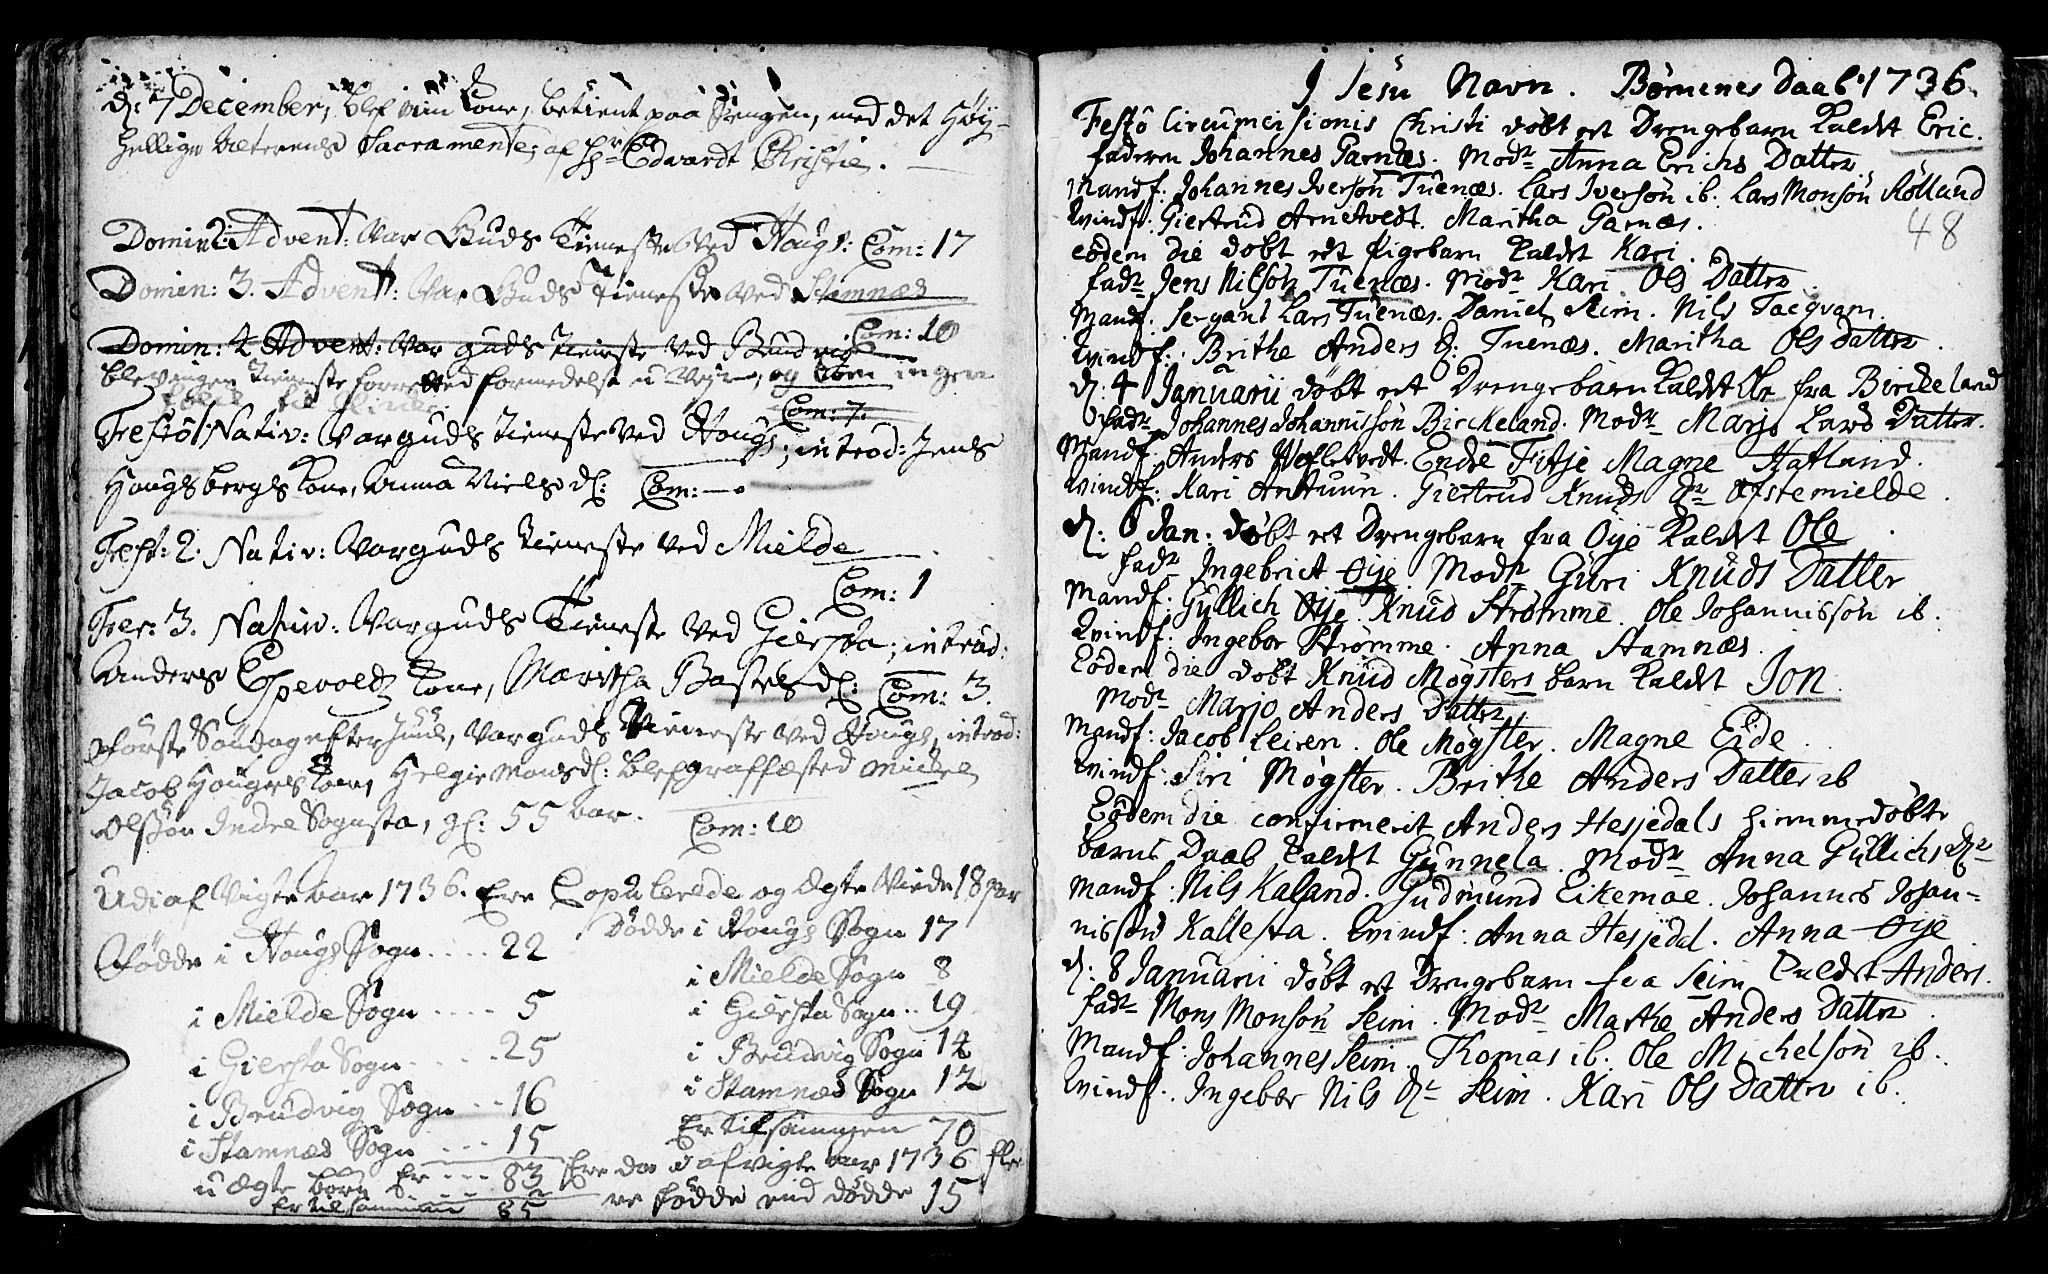 d: 7 December, blef min Kone, betient paa Sengen, med det Høy-
hellige Alterens Sacramente; af Hr. Edvardt Christie.
Domin 2 Advent: Var Guds Tieneste Ved Hougs: Com: 17
Domin: 3. Advent: Var Guds Tieneste Ved Stamnæs
Com: 10
Domin: 4 Advent: Var guds tieneste ved Brudvig
blev ingen tieneste forrettet formedelst u Vejr, og kom ingen
folck til Kircke
Com: 7.
Festo Nativ: Var guds tieneste Ved Hougs; introd: Jens
Hougsbergs Kone, Anna Niels d: Com: —
Fest: 2. Nativ: Var guds tieneste ved Mielde
Com: 1
Fer: 3. Nativ: Var guds Tieneste Ved Giersta; introd:
Anders Espevolds Kone, Maritha Bastels d: Com: 3.
Første Søndag efter Juul, Var guds Tieneste Ved Hougs, introd:
Jacob Houges Kone, Helgie Mons d: blef graffæsted Mickel
Olsøn Indre Songsta, gl: 55 aar.
Com: 10
Udi af Vigte aar 1736. Ere Copulerede og Ægte Viede 18 par
Fødde i Hougs Sogn .... 22
Dødde i Hougs Sogn 17
i Mielde Sogn .... 5
i Mielde Sogn 8
i Giersta Sogn .... 25
i Giersta Sogn .. 19
i Brudvig Sogn .. 16
i Brudvig Sogn 14
i Stamnæs Sogn ... 15
i Stamnæs Sogn 12
Er tilsammen 70
u ægte børn Er ... 83
Er tilsammen 85
Ere da i afvigte aar 1736 fle-
re fødde end dødde 15
I Jesu Navn. Børnenes Daab 1736
Festo Circumcisionis Christi døbt et Drengebarn kaldet Eric.
faderen Johannes Garnæs. Modr Anna Erichs Datter
Mandf: Johannes Iversøn Tuenæs. Lars Iversøn ib. Lars Monsøn Rølland
Kvindf: Giertrud Arnetvedt. Maritha Garnæs.
48
eodem die døbt et Pigebarn kaldet Kari.
fadr Jens Nilsøn Tuenæs. Modr Kari Ols Datter
Mandf. Sergant Lars Tuenæs. Daniel Seim. Nils Tacqvam.
Kvindf: Brithe Anders d: Tuenæs. Maritha Ols Datter.
d: 4 Januarii døbt et Drengebarn kaldet Ole fra Birckeland
fadr Johannes Johannissøn Birckeland. Modr Marjo Lars Datter.
Mandf. Anders Ytletvedt. Endre Fitje Magne Hatland.
Kvindf: Kari Antuun. Giertrud Knuds dr Afstemielde.
d: 6 Jan: døbt et Drengebarn fra Øye kaldet Ole
fadr Ingebrict Øye Modr Guri Knuds Datter
Mandf: Gullich Øye Knud Strømme. Ole Johannissøn ib.
Kvindf: Ingebor Strømme. Anna Stamnæs.
Eodem die døbt Knud Møgsters barn kaldet Jon
Modr Marjo Anders Datter.
Mandf: Jacob Leiren. Ole Møgster. Magne Eide.
Kvindf: Siri Møgster. Brithe Anders Datter ib
Eodem die confirmerit Anders Hesjedals hiemmedøbte
barns Daab kaldet Gunnela. Modr Anna Gullichs dr
Mandf: Nils Kaland. Gudmund Eikemoe. Johannis Johan-
nissøn Kallesta. Kvindf: Anna Hesjedal. Anna Øye
d: 8 Januarii døbt et Drengebarn fra Seim kaldet Anders.
fadr Mons Monsøn Seim. Modr Marthe Anders Datter
Mandf: Johannes Seim. Thomas ib. Ole Michelsøn ib.
Kvindf: Ingebor Nils dr Seim. Kari Ols Datter ib.